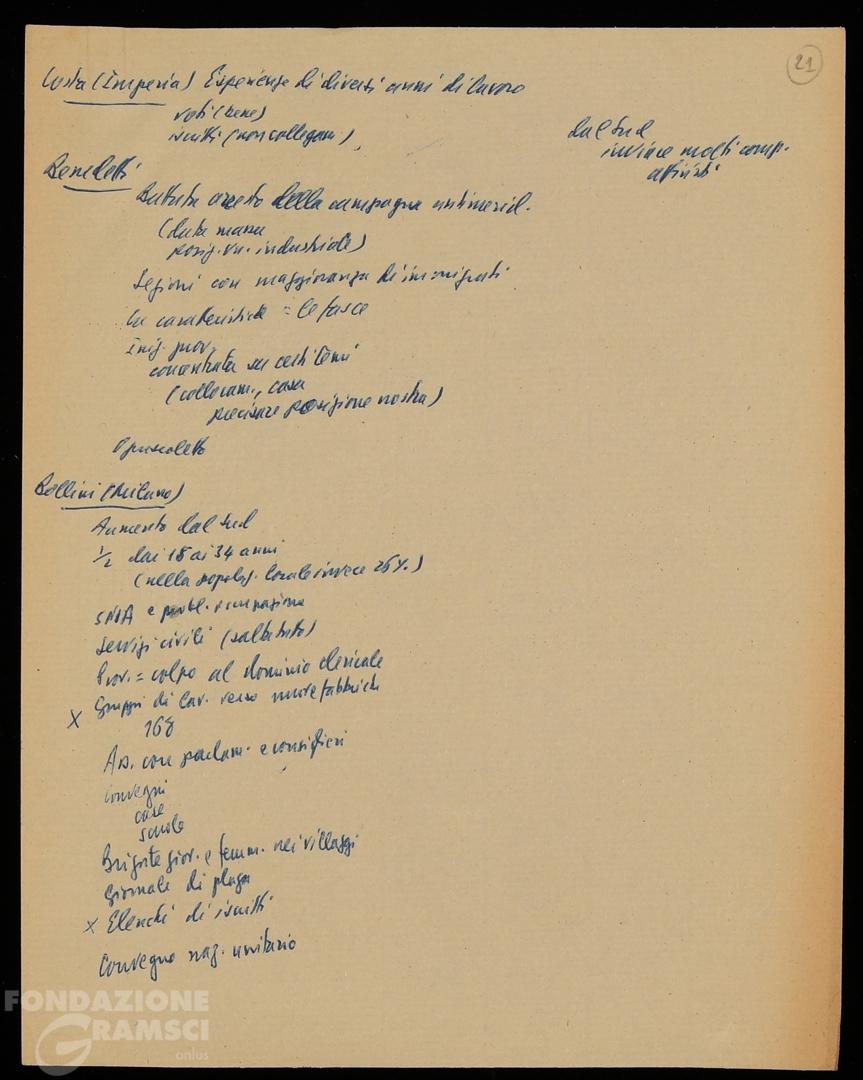 21
Costa (Imperia) Esperienze di diversi anni di lavoro
voti (bene)
iscritti (non collegam.)
dal Sud
inviare molti comp.
attivisti
Benedetti
Battuta arresto della campagna antimerid.
(data massa
posiz. industriale)
Sezioni con maggioranza di immigrati
le caratteristiche = le fasce
Iniz. prov.
concentrata su certi temi
(collocam., casa
precisare posizione nostra)
Opuscoletto
Bollini (Milano)
Aumento dal Sud
1/2 dai 18 ai 34 anni
(nella popolaz. locale invece 26%.)
SNIA e probl. occupazione
Servizi civili (saltato)
Prov. = colpo al dominio clericale
x Gruppi di lav. verso nuove fabbriche
168
Ass. con parlam. e consiglieri
Convegni
case
scuole
Brigate giov. e femm. nei villaggi
Giornale di plaga
x Elenchi di iscritti
Convegno naz. unitario
FONDAZIONE
GRAMSCI
onlus